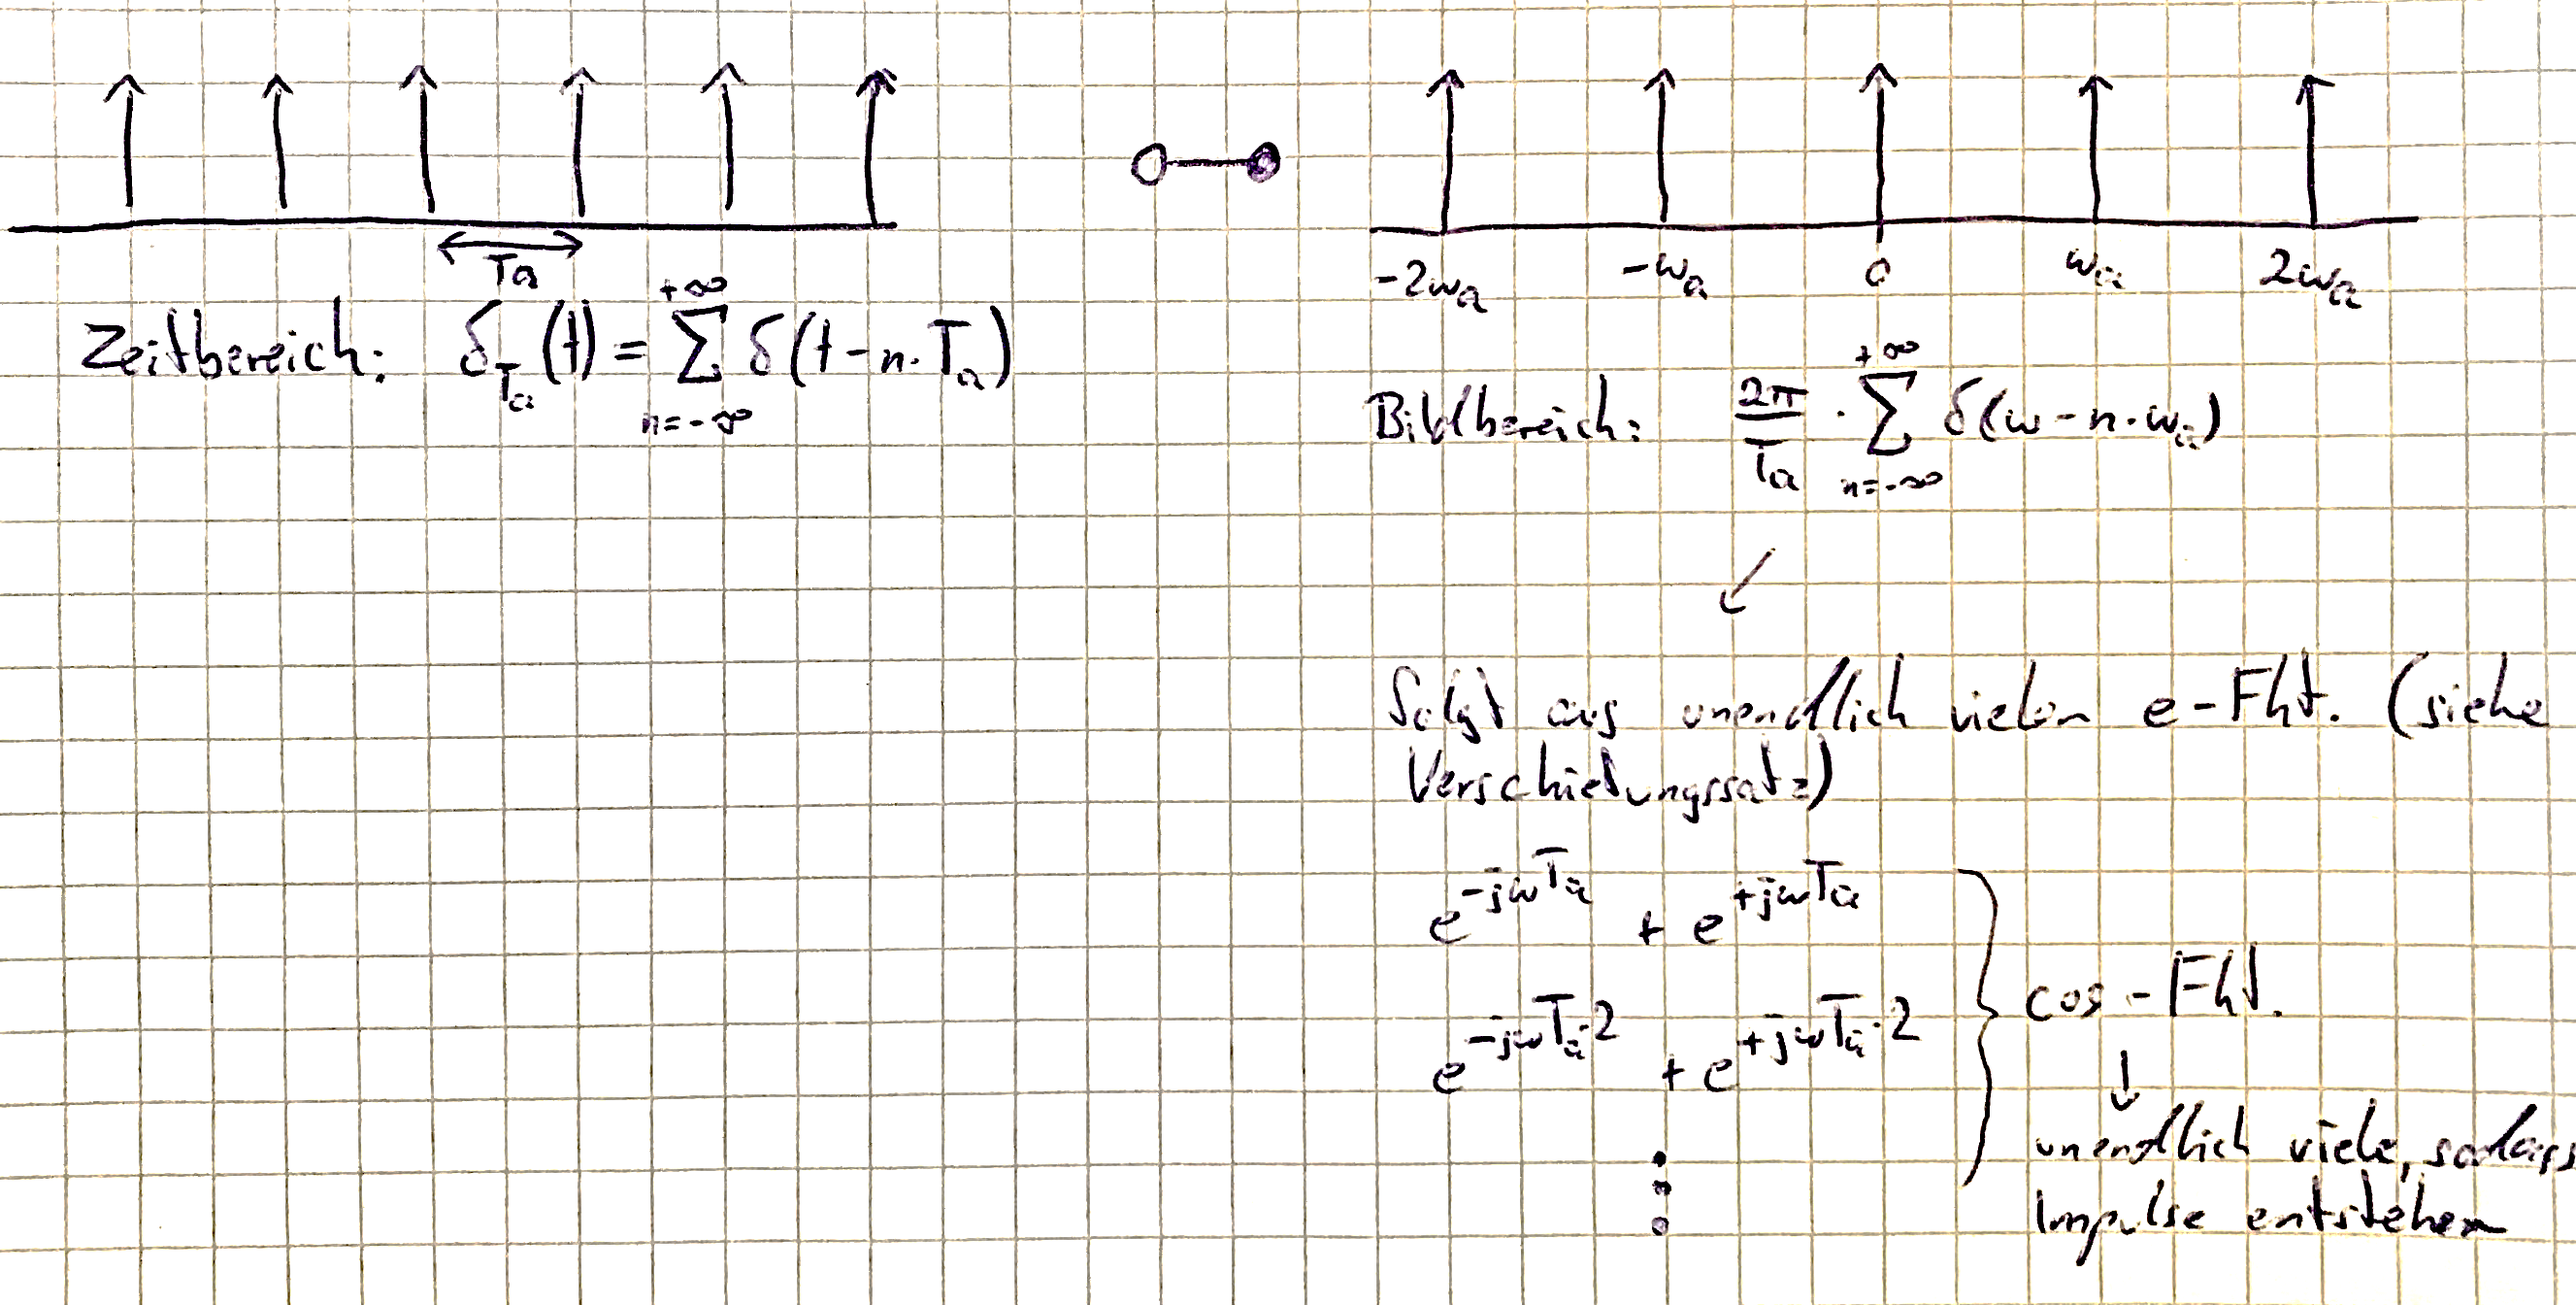 Ta
-2ωa -ωa 0 ωa 2ωa
Zeitbereich: δ_Ta (t) = +∞ Σ n=-∞ δ(t - n · Ta)
Bildbereich: 2π/Ta · +∞ Σ n=-∞ δ(ω - n · ωa)
folgt aus unendlich vielen e-Fkt. (siehe
Verschiebungssatz)
e^-jωTa + e^+jωTa
e^-jωTa·2 + e^+jωTa·2
cos-Fkt.
unendlich viele, sodass
Impulse entstehen